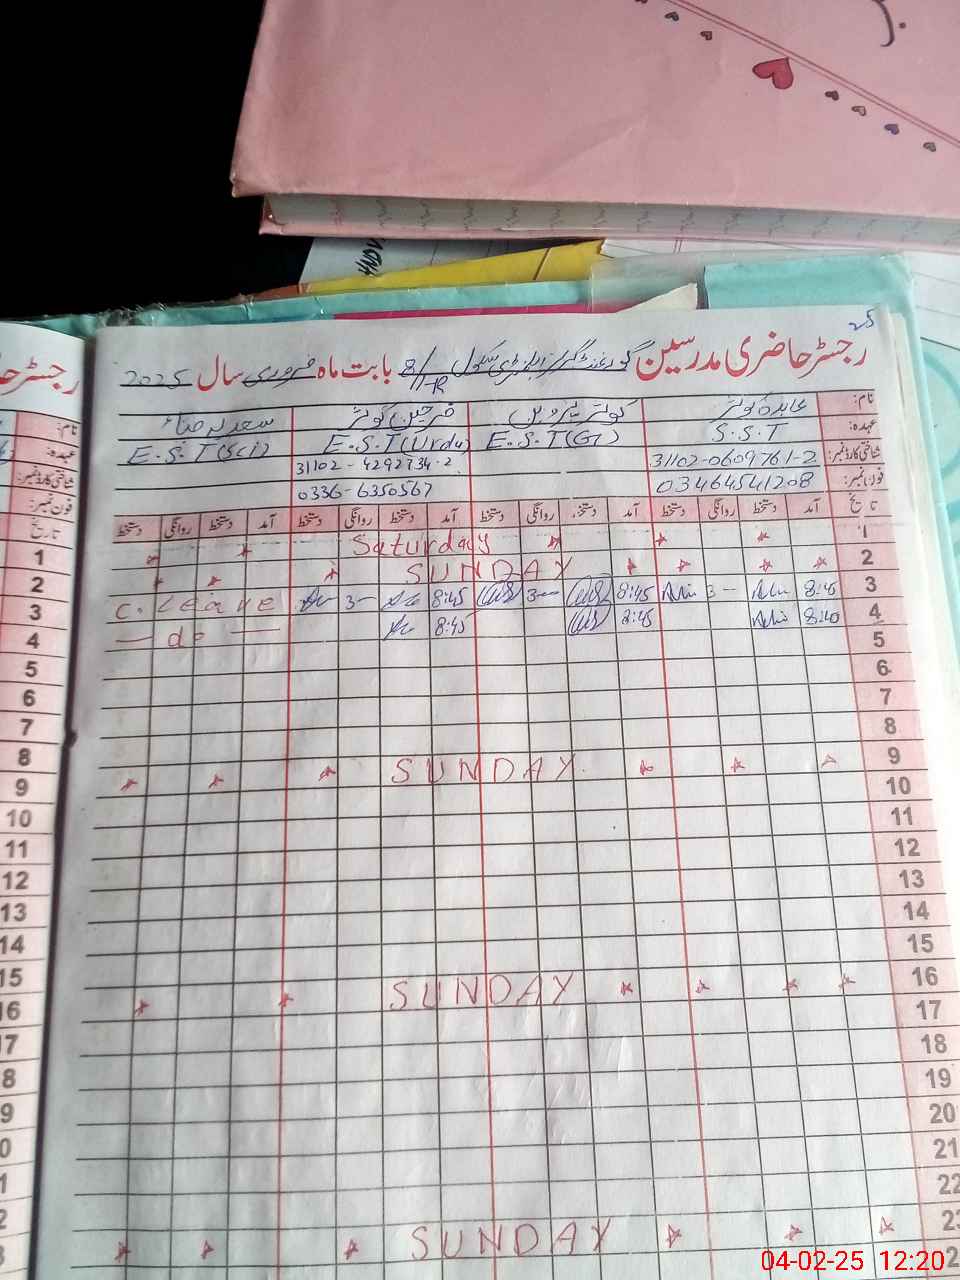 25
رجسٹر حاضری مدرسین گورنمنٹ گرلز ایلیمنٹری سکول 8/11-R بابت ماہ فروری سال 2025
نام: عابدہ کوثر کوثر پروین فرحین کوثر سعدیہ
عہدہ: S.S.T E.S.T(G) E.S.T(Urdu) E.S.T(Sci)
شناختی کارڈ نمبر: 31102-0609761-2 31102-4292734-2
فون نمبر: 03464541208 0336-6350567
تاریخ آمد دستخط روانگی دستخط آمد دستخط روانگی دستخط آمد دستخط روانگی دستخط آمد دستخط روانگی دستخط
1 Saturday
2 SUNDAY
3 8:45 3- 8:45 3- 8:45 3- C. Leave
4 8:40 8:45 8:45 — do —
5
6
7
8
9 SUNDAY
10
11
12
13
14
15
16 SUNDAY
17
18
19
20
21
22
23 SUNDAY
رجسٹر
نام:
عہدہ:
شناختی کارڈ نمبر:
فون نمبر:
تاریخ
1
2
3
4
5
6
7
8
9
10
11
12
13
14
15
04-02-25 12:20